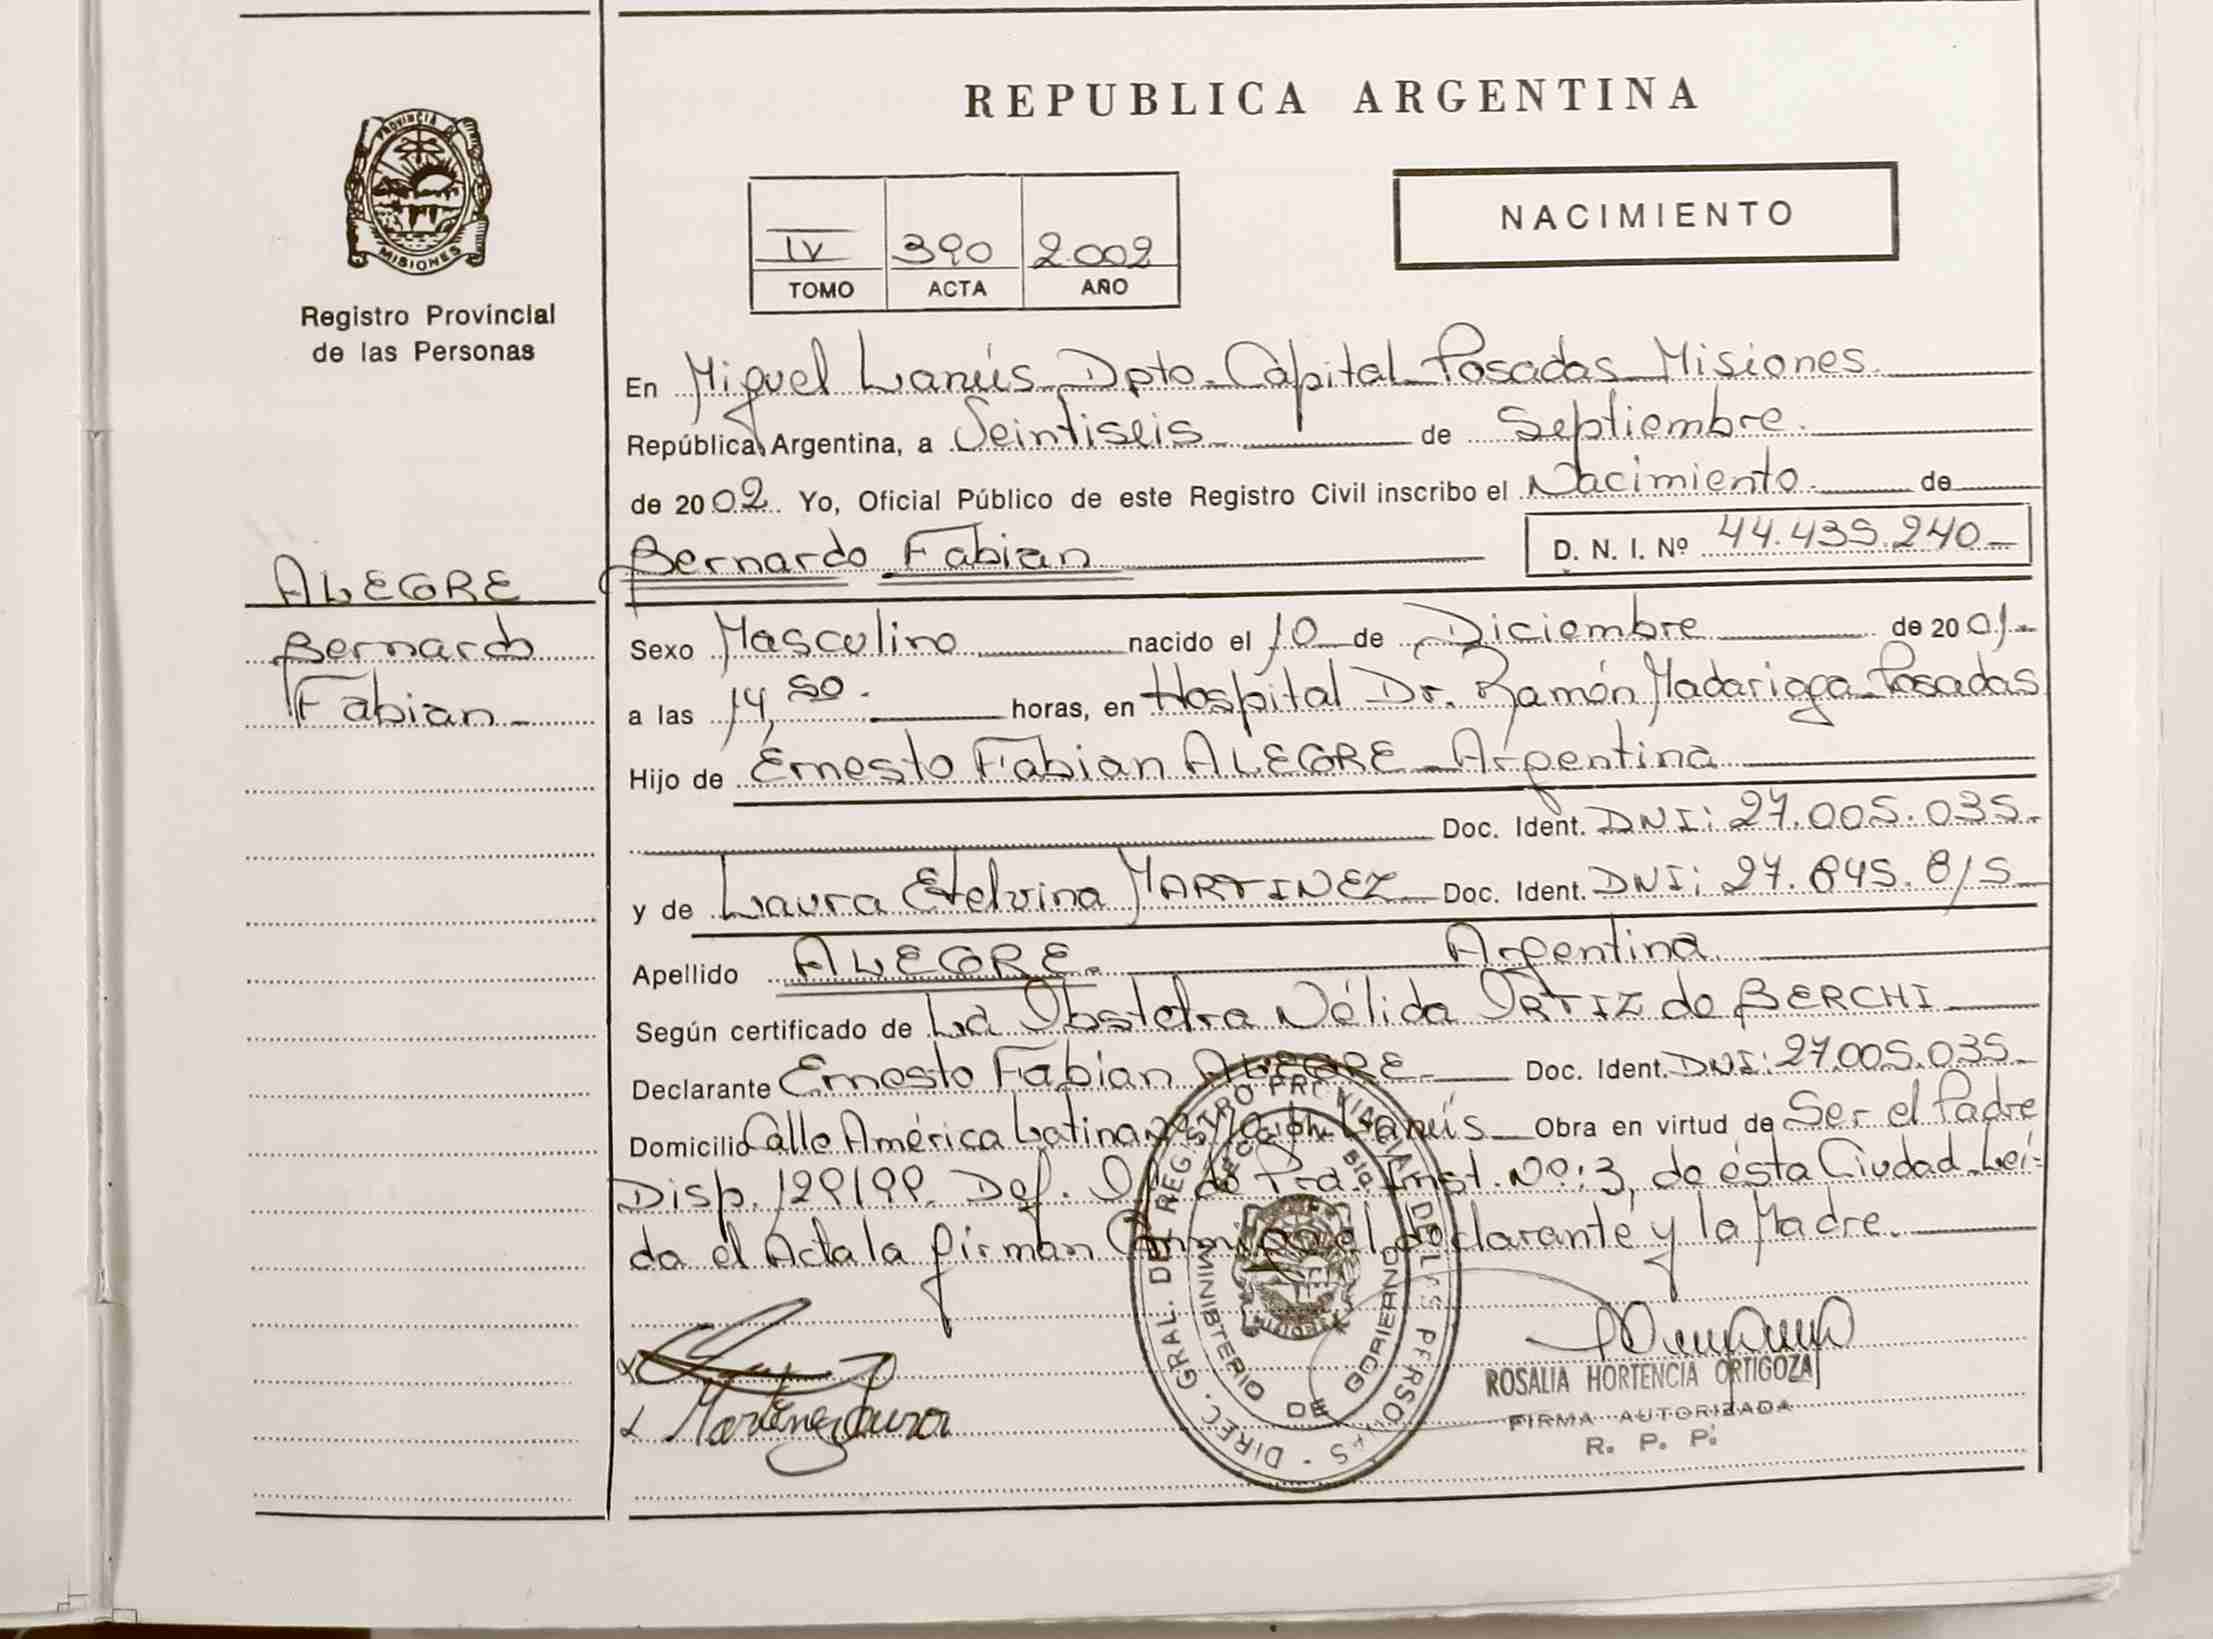 REPUBLICA ARGENTINA
PROVINCIA DE
MISIONES
Registro Provincial
de las Personas
NACIMIENTO
IV 390 2.002
TOMO ACTA AÑO
En Miguel Lanús Dpto. Capital Posadas Misiones.
República Argentina, a Veintiseis de Septiembre.
de 2002. Yo, Oficial Público de este Registro Civil inscribo el Nacimiento. de
Bernardo Fabian D. N. I. Nº 44.435.240
ALEGRE
Bernardo
Fabian
Sexo Masculino nacido el 10 de Diciembre de 2001.
a las 14,50. horas, en Hospital Dr. Ramón Madariaga Posadas
Hijo de Ernesto Fabian ALEGRE Argentina
Doc. Ident. DNI: 27.005.035.
y de Laura Etelvina MARTINEZ Doc. Ident. DNI: 27.845.815
Apellido ALEGRE. Argentina
Según certificado de La Obstetra Nélida ORTIZ de BERCHI
Declarante Ernesto Fabian ALEGRE Doc. Ident. DNI: 27.005.035.
Domicilio Calle América Latina Lanús Obra en virtud de Ser el Padre
Disp. 129/99. Def. de Pra. Inst. Nº: 3, de ésta Ciudad. Lei=
da el Acta la firman Conmigo el declarante y la Madre.
DIREC. GRAL. DEL REGISTRO PROVINCIAL DE LAS PERSONAS
MINISTERIO DE GOBIERNO
MISIONES
Martinez Laura
ROSALIA HORTENCIA ORTIGOZA
FIRMA AUTORIZADA
R. P. P.